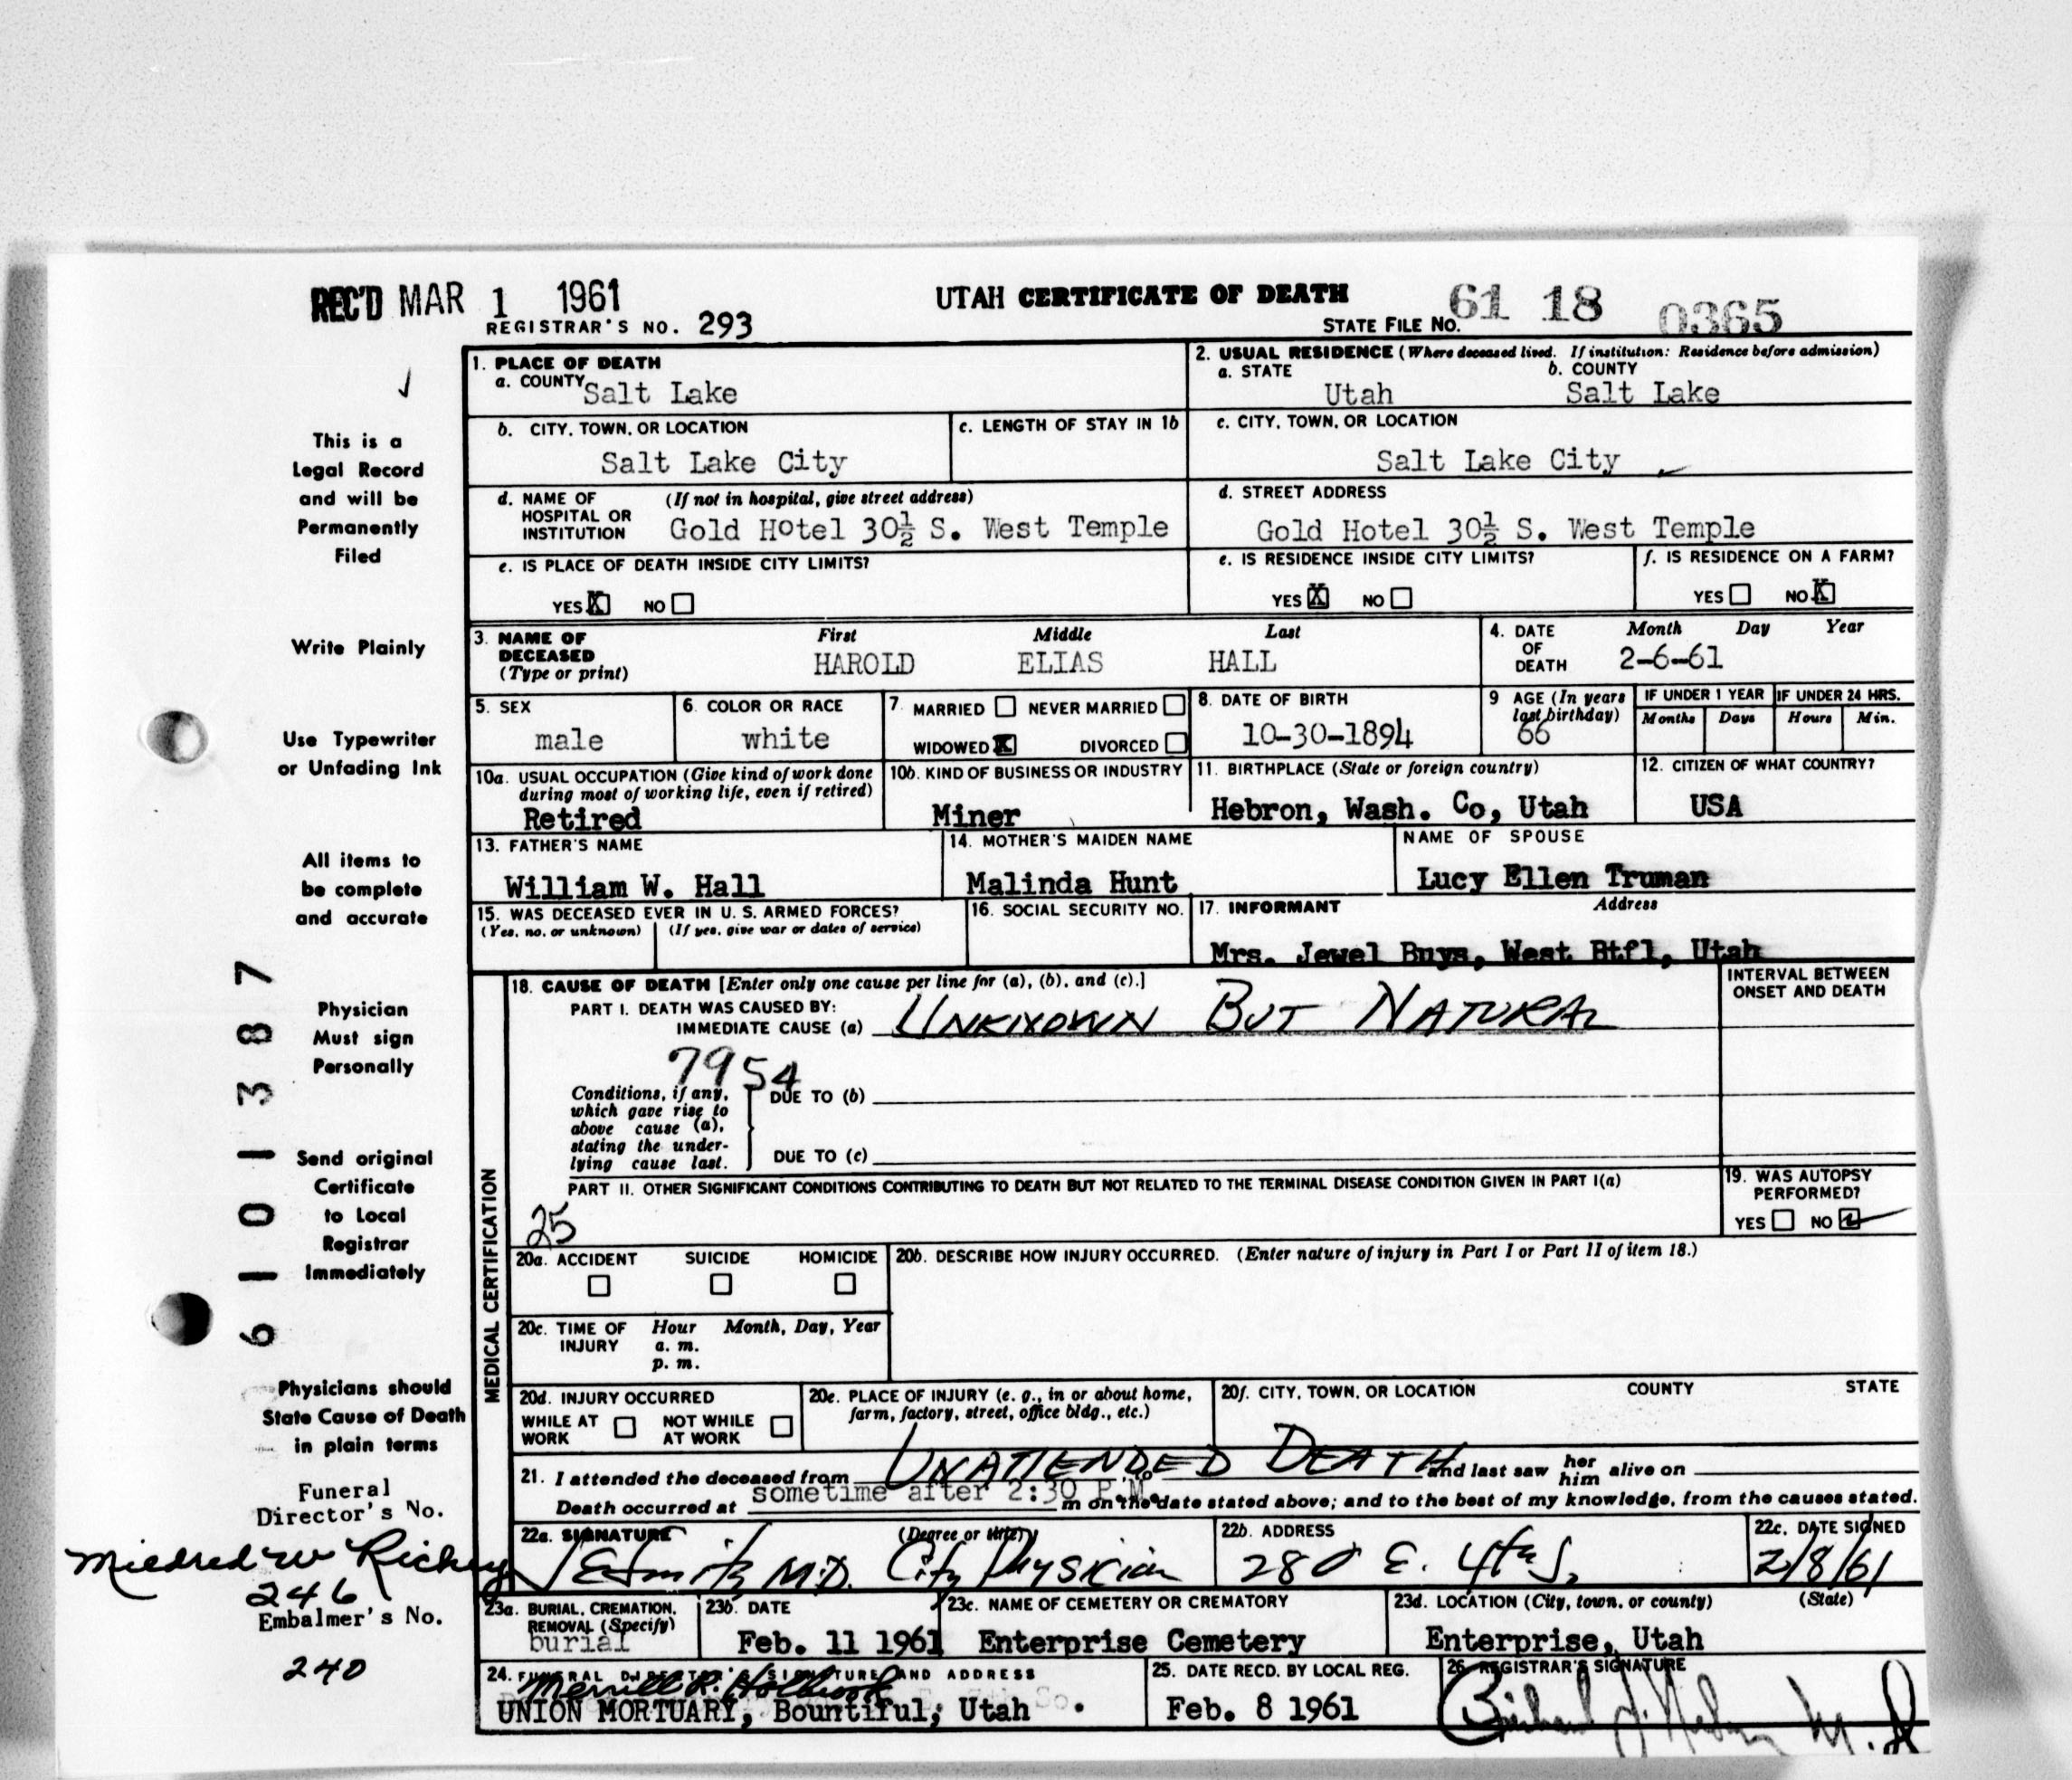 REC'D MAR 1 1961
UTAH CERTIFICATE OF DEATH
REGISTRAR'S NO. 293
STATE FILE No. 61 18 0365
This is a
Legal Record
and will be
Permanently
Filed
Write Plainly
Use Typewriter
or Unfading Ink
All items to
be complete
and accurate
Physician
Must sign
Personally
Send original
Certificate
to Local
Registrar
Immediately
Physicians should
State Cause of Death
in plain terms
Funeral
Director's No.
Mildred W Richey
246
Embalmer's No.
240
6101387
1. PLACE OF DEATH
a. COUNTY Salt Lake
2. USUAL RESIDENCE (Where deceased lived. If institution: Residence before admission)
a. STATE Utah b. COUNTY Salt Lake
b. CITY, TOWN, OR LOCATION Salt Lake City
c. LENGTH OF STAY IN 1b
c. CITY, TOWN, OR LOCATION Salt Lake City
d. NAME OF HOSPITAL OR INSTITUTION (If not in hospital, give street address) Gold Hotel 30½ S. West Temple
d. STREET ADDRESS Gold Hotel 30½ S. West Temple
e. IS PLACE OF DEATH INSIDE CITY LIMITS?
YES X NO
e. IS RESIDENCE INSIDE CITY LIMITS?
YES X NO
f. IS RESIDENCE ON A FARM?
YES NO X
3. NAME OF DECEASED (Type or print) First HAROLD Middle ELIAS Last HALL
4. DATE OF DEATH Month Day Year 2-6-61
5. SEX male
6. COLOR OR RACE white
7. MARRIED NEVER MARRIED
WIDOWED X DIVORCED
8. DATE OF BIRTH 10-30-1894
9 AGE (In years last birthday) 66
IF UNDER 1 YEAR Months Days
IF UNDER 24 HRS. Hours Min.
10a. USUAL OCCUPATION (Give kind of work done during most of working life, even if retired) Retired
10b. KIND OF BUSINESS OR INDUSTRY Miner
11. BIRTHPLACE (State or foreign country) Hebron, Wash. Co, Utah
12. CITIZEN OF WHAT COUNTRY? USA
13. FATHER'S NAME William W. Hall
14. MOTHER'S MAIDEN NAME Malinda Hunt
NAME OF SPOUSE Lucy Ellen Truman
15. WAS DECEASED EVER IN U. S. ARMED FORCES?
(Yes, no, or unknown) (If yes, give war or dates of service)
16. SOCIAL SECURITY NO.
17. INFORMANT Address
Mrs. Jewel Buys, West Btfl, Utah
MEDICAL CERTIFICATION
18. CAUSE OF DEATH [Enter only one cause per line for (a), (b), and (c).]
INTERVAL BETWEEN ONSET AND DEATH
PART I. DEATH WAS CAUSED BY:
IMMEDIATE CAUSE (a) UNKNOWN BUT NATURAL
7954
Conditions, if any, which gave rise to above cause (a), stating the underlying cause last.
DUE TO (b)
DUE TO (c)
PART II. OTHER SIGNIFICANT CONDITIONS CONTRIBUTING TO DEATH BUT NOT RELATED TO THE TERMINAL DISEASE CONDITION GIVEN IN PART I(a)
25
19. WAS AUTOPSY PERFORMED?
YES NO ✓
20a. ACCIDENT SUICIDE HOMICIDE
20b. DESCRIBE HOW INJURY OCCURRED. (Enter nature of injury in Part I or Part II of item 18.)
20c. TIME OF INJURY Hour a. m. p. m. Month, Day, Year
20d. INJURY OCCURRED
WHILE AT WORK NOT WHILE AT WORK
20e. PLACE OF INJURY (e. g., in or about home, farm, factory, street, office bldg., etc.)
20f. CITY, TOWN, OR LOCATION COUNTY STATE
21. I attended the deceased from UNATTENDED DEATH and last saw her him alive on
Death occurred at sometime after 2:30 P.M. m on the date stated above; and to the best of my knowledge, from the causes stated.
22a. SIGNATURE (Degree or title) M.D. City Physician
22b. ADDRESS 280 E. 4th S.
22c. DATE SIGNED 2/8/61
23a. BURIAL, CREMATION, REMOVAL (Specify) burial
23b. DATE Feb. 11 1961
23c. NAME OF CEMETERY OR CREMATORY Enterprise Cemetery
23d. LOCATION (City, town, or county) (State) Enterprise, Utah
24. FUNERAL DIRECTOR'S SIGNATURE AND ADDRESS
Merrill R. Holbrook
UNION MORTUARY, Bountiful, Utah
25. DATE RECD. BY LOCAL REG. Feb. 8 1961
26. REGISTRAR'S SIGNATURE